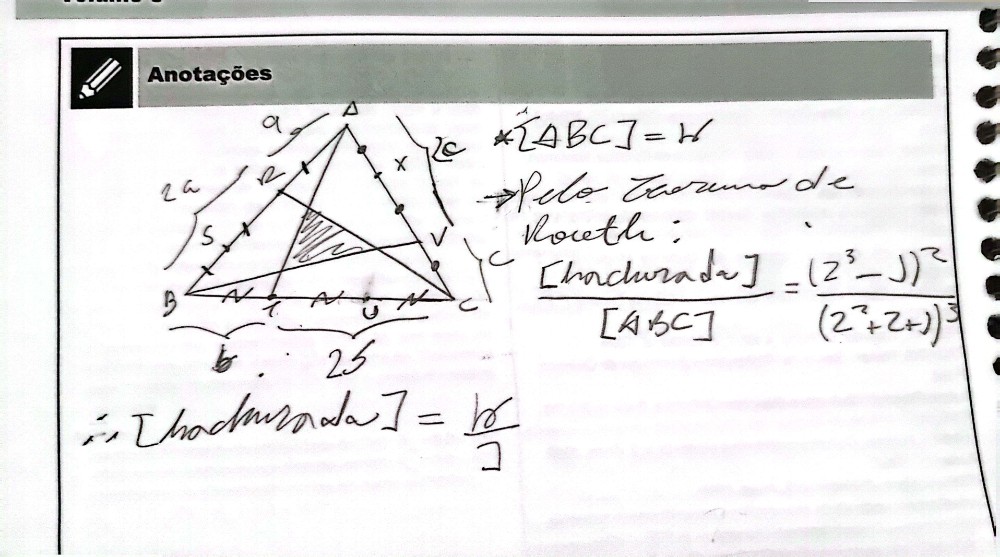 Anotações
A
a
2c
R
x
2a
S
V
c
B
T
U
C
b
2b
*[ABC] = W
→ Pelo Teorema de
Routh:
[hachurada] / [ABC] = (2³ - 1)² / (2² + 2 + 1)³
∴ [hachurada] = W / 7